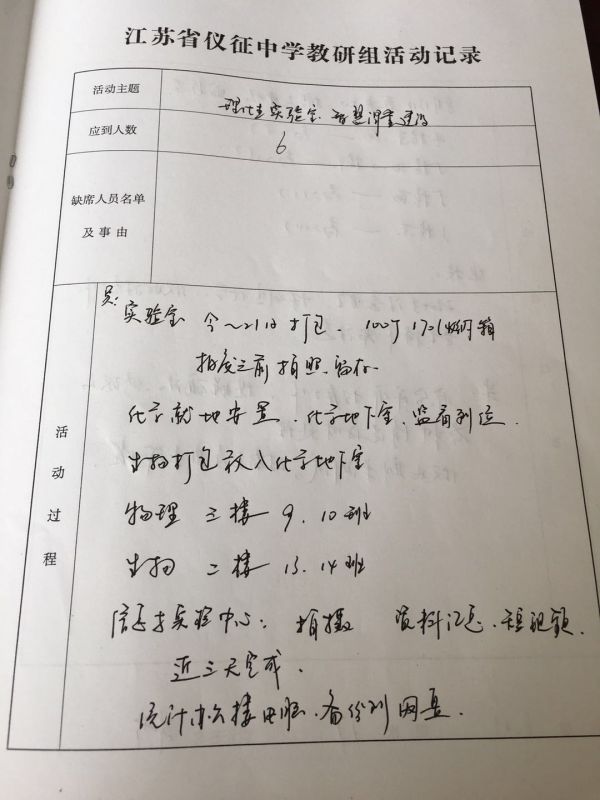 江苏省仪征中学教研组活动记录
活动主题
理化生实验室 智慧课堂建设
应到人数
6
缺席人员名单
及事由
活动过程
实验室 今~21日 打包. 100个
之前 拍照.留存.
化学就地安置.化学地下室.监看到位.
生物打包放入化学地下室
物理 三楼 9.10班
生物 二楼 13.14班
信息与实验中心: 拍摄 资料汇总.短视频.
近三天完成.
统计办公楼电脑.备份到网盘.